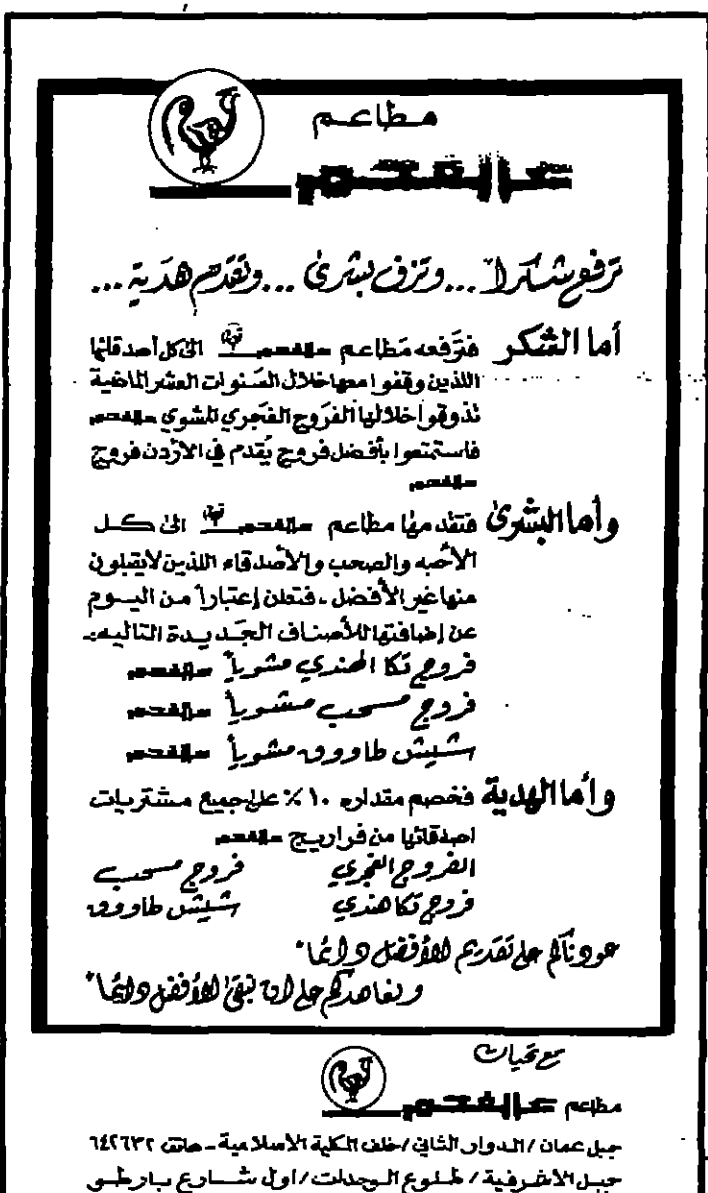 مطاعم
عالفحم
ترفع شكراً ... وتزف بشرى ... وتقدم هدية ...
أما الشكر فترفعه مطاعم عالفحم الى كل أصدقائها
اللذين وقفوا معها خلال السنوات العشر الماضية
تذوقوا خلالها الفروج الفجري المشوي عالفحم
فاستمتعوا بأفضل فروج يُقدم في الاردن فروج
عالفحم
وأما البشرى فتقدمها مطاعم عالفحم الى كل
الأحبه والصحب والأصدقاء اللذين لايقبلون
منها غير الأفضل ، فتعلن إعتباراً من اليوم
عن إضافتها للأصناف الجديدة التاليه:ـ
فروج تكا الهندي مشوياً عالفحم
فروج مسحب مشوياً عالفحم
شيش طاووق مشوياً عالفحم
وأما الهدية فخصم مقداره ١٠٪ على جميع مشتريات
اصدقائها من فراريج عالفحم
الفروج الفجري فروج مسحب
فروج تكا هندي شيش طاووق
عودناكم على تقديم الأفضل دائماً
ونعاهدكم على ان نبقى الأفضل دائماً
مع تحيات
مطاعم عالفحم
جبل عمان / الدوار الثاني / خلف الكلية الاسلامية ـ هاتف ٦٤٢٦٣٢
جبل الاشرفية / طلوع الوحدات / اول شارع بارطو